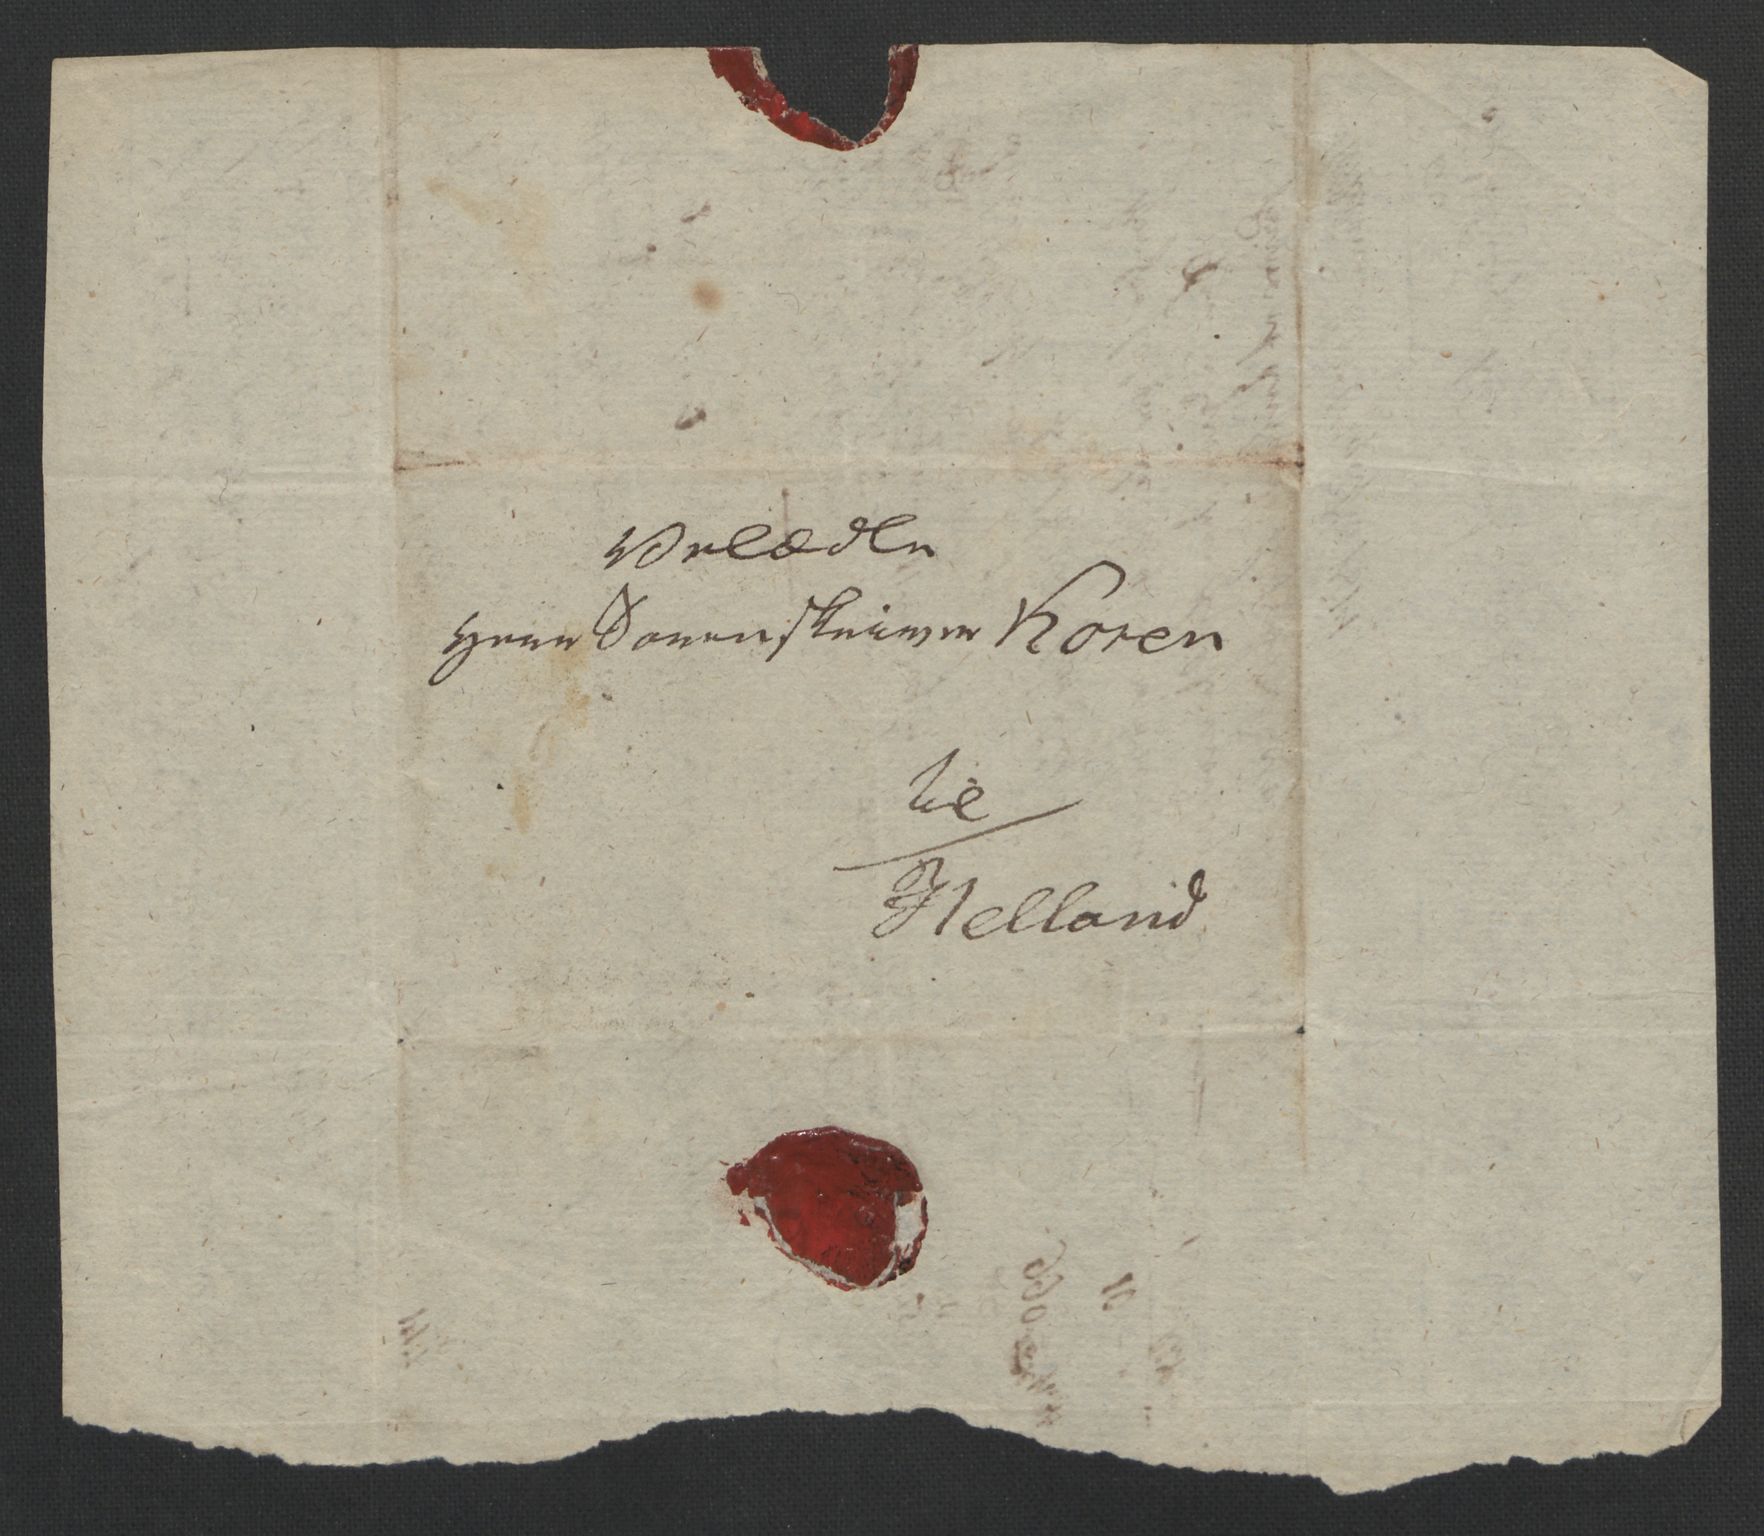 Velædle
Herr Sorenskriver Koren
til
Helland